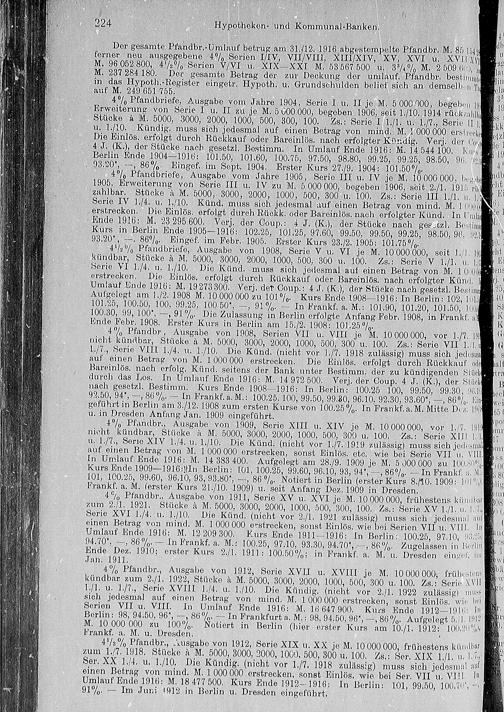 224 Hypotheken- und Kommunal-Banken.
Der gesamte Pfandbr.-Umlauf betrug am 31./12. 1916 abgestempelte Pfandbr. M. 85
ferner neu ausgegebene 4% Serien I/IV, VII/VIII, XIII/XIV, XV, XVI u.
M. 96 052 800, 4½% Serien V/VI u. XIX—XXI M. 53 567 500, u. 3¾% M. 2 500
M. 237 284 180. Der gesamte Betrag der zur Deckung der umlauf. Pfandbr.
in das Hypoth.-Register eingetr. Hypoth. u. Grundschulden belief sich an demselben
auf M. 249 651 755.
4% Pfandbriefe, Ausgabe vom Jahre 1904, Serie I u. II je M. 5 000 000, begeben
Erweiterung von Serie I u. II zu je M. 5 000 000, begeben 1906, seit 1./10. 1914
Stücke à M. 5000, 3000, 2000, 1000, 500, 300, 100. Zs.: Serie I 1./1. u. 1./7., Serie II
u. 1./10. Kündig. muss sich jedesmal auf einen Betrag von mind. M. 1 000 000
Die Einlös. erfolgt durch Rückkauf oder Bareinlös. nach erfolgter Kündig. Verj. der
4 J. (K.), der Stücke nach gesetzl. Bestimm. In Umlauf Ende 1916: M. 14 544 100.
Berlin Ende 1904—1916: 101.50, 101.60, 100.75, 97.50, 98.80, 99.25, 99.25, 98.50, 96.
93.20*, —, 86%. Eingef. im Sept. 1904. Erster Kurs 27./9. 1904: 101.50%.
4% Pfandbriefe, Ausgabe vom Jahre 1905, Serie III u. IV je M. 10 000 000,
1905. Erweiterung von Serie III u. IV zu M. 5 000 000, begeben 1906, seit 2./1. 1915
zahlbar. Stücke à M. 5000, 3000, 2000, 1000, 500, 300 u. 100. Zs.: Serie III 1./1.
Serie IV 1./4. u. 1./10. Künd. muss sich jedesmal auf einen Betrag von mind. M.
erstrecken. Die Einlös. erfolgt durch Rückk. oder Bareinlös. nach erfolgter Künd. In
Ende 1916: M. 23 295 600. Verj. der Coup.: 4 J. (K.), der Stücke nach gesetzl.
Kurs in Berlin Ende 1905—1916: 102.25, 101.25, 97.60, 99.50, 99.50, 99.25, 98.50, 96.
93.20*, —, 86%. Eingef. im Febr. 1905. Erster Kurs 23./2. 1905: 101.75%.
4½% Pfandbriefe, Ausgabe von 1908, Serie V u. VI je M. 10 000 000, seit
kündbar, Stücke à M. 5000, 3000, 2000, 1000, 500, 300 u. 100. Zs.: Serie V 1./1. u.
Serie VI 1./4. u. 1./10. Die Künd. muss sich jedesmal auf einen Betrag von M.
erstrecken. Die Einlös. erfolgt durch Rückkauf oder Bareinlös. nach erfolgter Künd.
Ende 1916: M. 19 273 300. Verj. der Coup.: 4 J. (K.), der Stücke nach gesetzl.
Aufgelegt am 1./2. 1908 M. 10 000 000 zu 101%. Kurs Ende 1908—1916: In Berlin: 102,
101.25, 100.50, 100, 99.25, 100.50*, —, 91%. — In Frankf. a. M.: 101.90, 101.20, 101.50,
100.30, 99, 100*, —, 91%. Die Zulassung in Berlin erfolgte Anfang Febr. 1908, in Frankf.
Ende Febr. 1908. Erster Kurs in Berlin am 15./2. 1908: 101.25%.
% Pfandbr., Ausgabe von 1908, Serien VII u. VIII je M. 10 000 000, vor 1./7.
nicht kündbar, Stücke à M. 5000, 3000, 2000, 1000, 500, 300 u. 100. Zs.: Serie VII
1./7., Serie VIII 1./4. u. 1./10. Die Künd. (nicht vor 1./7. 1918 zulässig) muss sich
auf einen Betrag von M. 1 000 000 erstrecken. Die Einlös. erfolgt durch Rückkauf
Bareinlös. nach erfolg. Künd. seitens der Bank unter Bestimm. der zu kündigenden
durch das Los. In Umlauf Ende 1916: M. 14 972 500. Verj. der Coup. 4 J. (K.), der
nach gesetzl. Bestimm. Kurs Ende 1908—1916: In Berlin: 100.25, 100, 99.50, 99.30,
92.50, 94*, —, 86%. — In Frankf. a. M.: 100.25, 100, 99.50, 99.30, 96.10, 92.30, 93.60*, —, 86%.
geführt in Berlin am 3./12. 1908 zum ersten Kurse von 100.25%. In Frankf. a. M. Mitte Dez.
u. in Dresden Anfang Jan. 1909 eingeführt.
4% Pfandbr., Ausgabe von 1909, Serie XIII u. XIV je M. 10 000 000, vor 1./7.
nicht kündbar, Stücke à M. 5000, 3000, 2000, 1000, 500, 300 u. 100. Zs.: Serie XIII
u. 1./7., Serie XIV 1./4. u. 1./10. Die Künd. (nicht vor 1./7. 1919 zulässig) muss sich
auf einen Betrag von M. 1 000 000 erstrecken, sonst Einlös. etc. wie bei Serie VII u.
In Umlauf Ende 1916: M. 14 383 400. Aufgelegt am 28./9. 1909 je M. 5 000 000 zu
Kurs Ende 1909—1916: In Berlin: 101, 100.25, 99.60, 96.10, 93, 94*, —, 86%. — In Frankf. a. M.:
101, 100.25, 99.60, 96.10, 93, 93.80*, —, 86%. Notiert in Berlin (erster Kurs 8./10. 1909:
Frankf. a. M. (erster Kurs 21./10. 1909) u. seit Anfang Dez. 1909 in Dresden.
4% Pfandbr., Ausgabe von 1911, Serie XV u. XVI je M. 10 000 000, frühestens
zum 2./1. 1921. Stücke à M. 5000, 3000, 2000, 1000, 500, 300, 100. Zs.: Serie XV 1./1. u.
Serie XVI 1./4. u. 1./10. Die Künd. (nicht vor 2./1. 1921 zulässig) muss sich jedesmal
einen Betrag von mind. M. 1 000 000 erstrecken, sonst Einlös. wie bei Serien VII u. VIII. In
Umlauf Ende 1916: M. 12 209 300. Kurs Ende 1911—1916: In Berlin: 100.25, 97.10,
94.70*, —, 86%. — In Frankf. a. M.: 100.25, 97.10, 93.30, 94.70*, —, 86%. Zugelassen in Berlin
Ende Dez. 1910; erster Kurs 2./1. 1911: 100.50%; in Frankf. a. M. u. Dresden
Jan. 1911.
4% Pfandbr., Ausgabe von 1912, Serie XVII u. XVIII je M. 10 000 000,
kündbar zum 2./1. 1922, Stücke à M. 5000, 3000, 2000, 1000, 500, 300 u. 100. Zs.: Serie XVII
1./1. u. 1./7., Serie XVIII 1./4. u. 1./10. Die Kündig. (nicht vor 2./1. 1922 zulässig) muss
sich jedesmal auf einen Betrag von mind. M. 1 000 000 erstrecken, sonst Einlös. wie bei
Serien VII u. VIII. In Umlauf Ende 1916: M. 16 647 900. Kurs Ende 1912—1916: In
Berlin: 98, 94.50, 96*, —, 86%. — In Frankfurt a. M.: 98, 94.50, 96*, —, 86%. Aufgelegt 5./1. 1912
M. 10 000 000 zu 100%. Notiert in Berlin (hier erster Kurs am 10./1. 1912:
Frankf. a. M. u. Dresden.
4½% Pfandbr., Ausgabe von 1912, Serie XIX u. XX je M. 10 000 000, frühestens kündbar
zum 1./7. 1918. Stücke à M. 5000, 3000, 2000, 1000, 500, 300, 100. Zs.: Ser. XIX 1./1. u. 1./7.,
Ser. XX 1./4. u. 1./10. Die Kündig. (nicht vor 1./7. 1918 zulässig) muss sich jedesmal auf
einen Betrag von mind. M. 1 000 000 erstrecken, sonst Einlös. wie bei Ser. VII u. VIII. In
Umlauf Ende 1916: M. 18 477 500. Kurs Ende 1912—1916: In Berlin: 101, 99.50, 100.70*, —,
91%. — Im Juni 1912 in Berlin u. Dresden eingeführt.